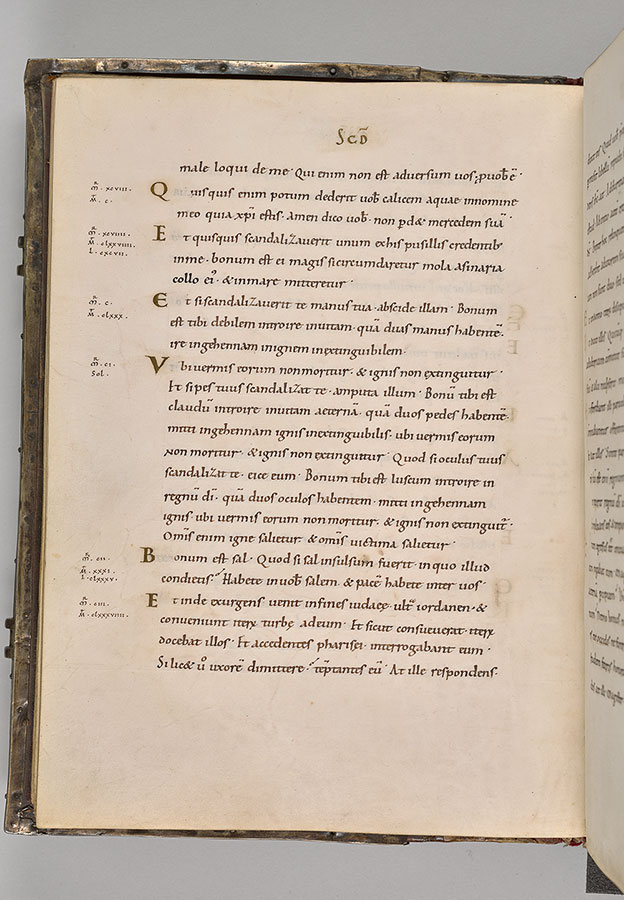 Scd̄
male loqui de me· Qui enim non est adversum vos; p̄ vob̄ ē·
ꝶ. xcviii.
m̄. c.
Quisquis enim potum dederit vob̄ calicem aquae innomine
meo quia xp̄i estis· amen dico vob̄· non pd& mercedem suā·
ꝶ. xcviiii.
m̄. clxxviiii.
l. cxcvii.
Et quisquis scandalizaverit unum exhis pusillis credentib;
inme· bonum est ei magis sicircumdaretur mola asinaria
collo ei'· & inmare mitteretur·
ꝶ. c.
m̄. clxxx.
Et si scandalizaverit te manus tua· abscide illam· Bonum
est tibi debilem introire invitam· quā duas manus habentē·
ire ingehennam inignem inextinguibilem·
ꝶ. ci.
Sol.
Vbi vermis eorum nonmoritur· & ignis non extinguitur·
Et sipes tuus scandalizat te· amputa illum· Bonū tibi est
claudū introire invitam aeternā· quā duos pedes habentē·
mitti ingehennam ignis inextinguibilis· ubi vermis eorum
non moritur· & ignis non extinguitur· Quod si oculus tuus
scandalizat te· eice eum· Bonum tibi est luscum introire in
regnū dī· quā duos oculos habentem· mitti ingehennam
ignis· ubi vermis eorum non moritur· & ignis non extinguit̄·
Om̄is enim igne salietur· & om̄is victima salietur·
ꝶ. cii.
m̄. xxxi.
l. clxxxv.
Bonum est sal· Quod si sal insulsum fuerit· in quo illud
condietis? Habete in vob̄ salem· & pacē habete inter vos·
ꝶ. ciii.
m̄. clxxxviiii.
Et inde exurgens venit infines iudaeę· ult̄ iordanen· &
conveniunt iterū turbę adeum· Et sicut consueverat· iterū
docebat illos· Et accedentes pharisei· interrogabant eum·
Si lic& v̊ uxorē dimittere· temptantes eū· At ille respondens·